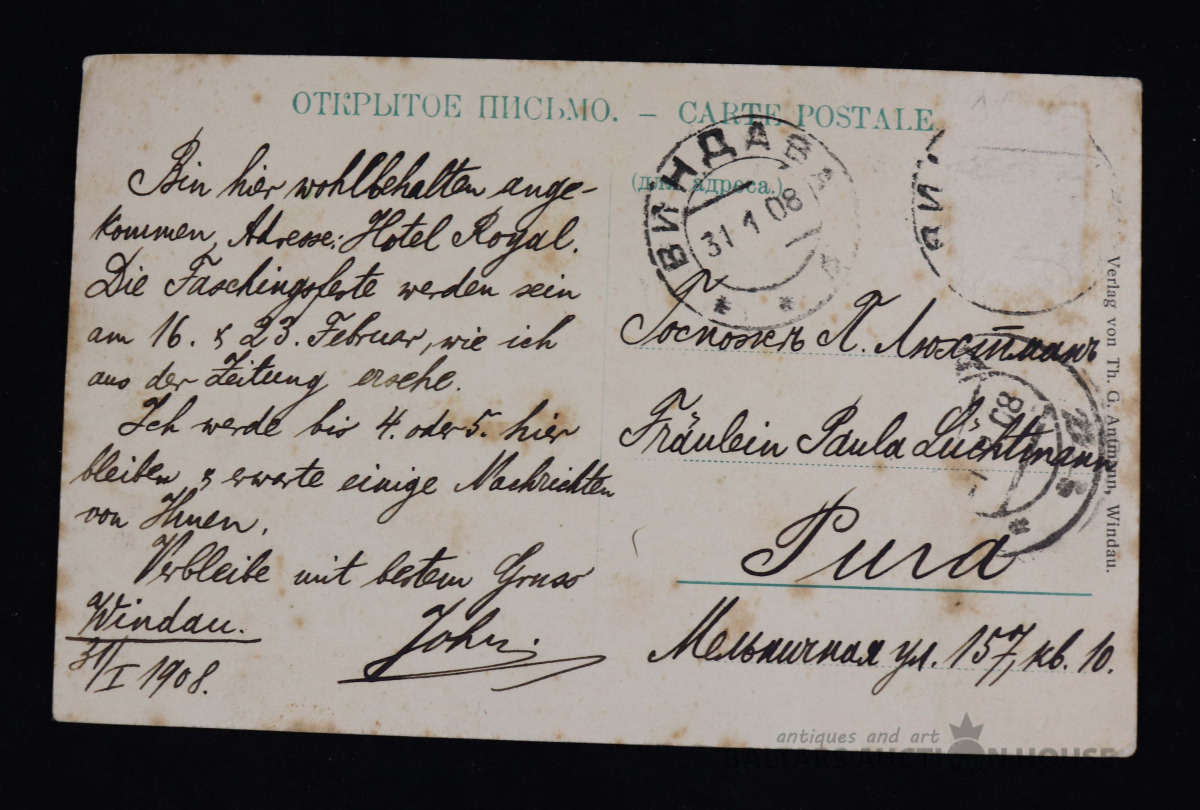 ОТКРЫТОЕ ПИСЬМО. – CARTE POSTALE
(для адреса.)
Bin hier wohlbehalten ange-
kommen, Adresse: Hotel Royal.
Die Faschingsfeste werden sein
am 16. & 23. Februar, wie ich
aus der Zeitung ersehe.
Ich werde bis 4. oder 5. hier
bleiben & erwarte einige Nachrichten
von Ihnen.
Verbleibe mit bestem Gruss
John.
Windau.
31/I 1908.
ВИНДАВА
31 1 08
Госпожѣ П. Люхтманъ
Fräulein Paula Lüchtmann
Рига
Мельничная ул. 157, кв. 10.
Verlag von Th. G. Autmann, Windau.
antiques and art
BALTARS AUCTION HOUSE